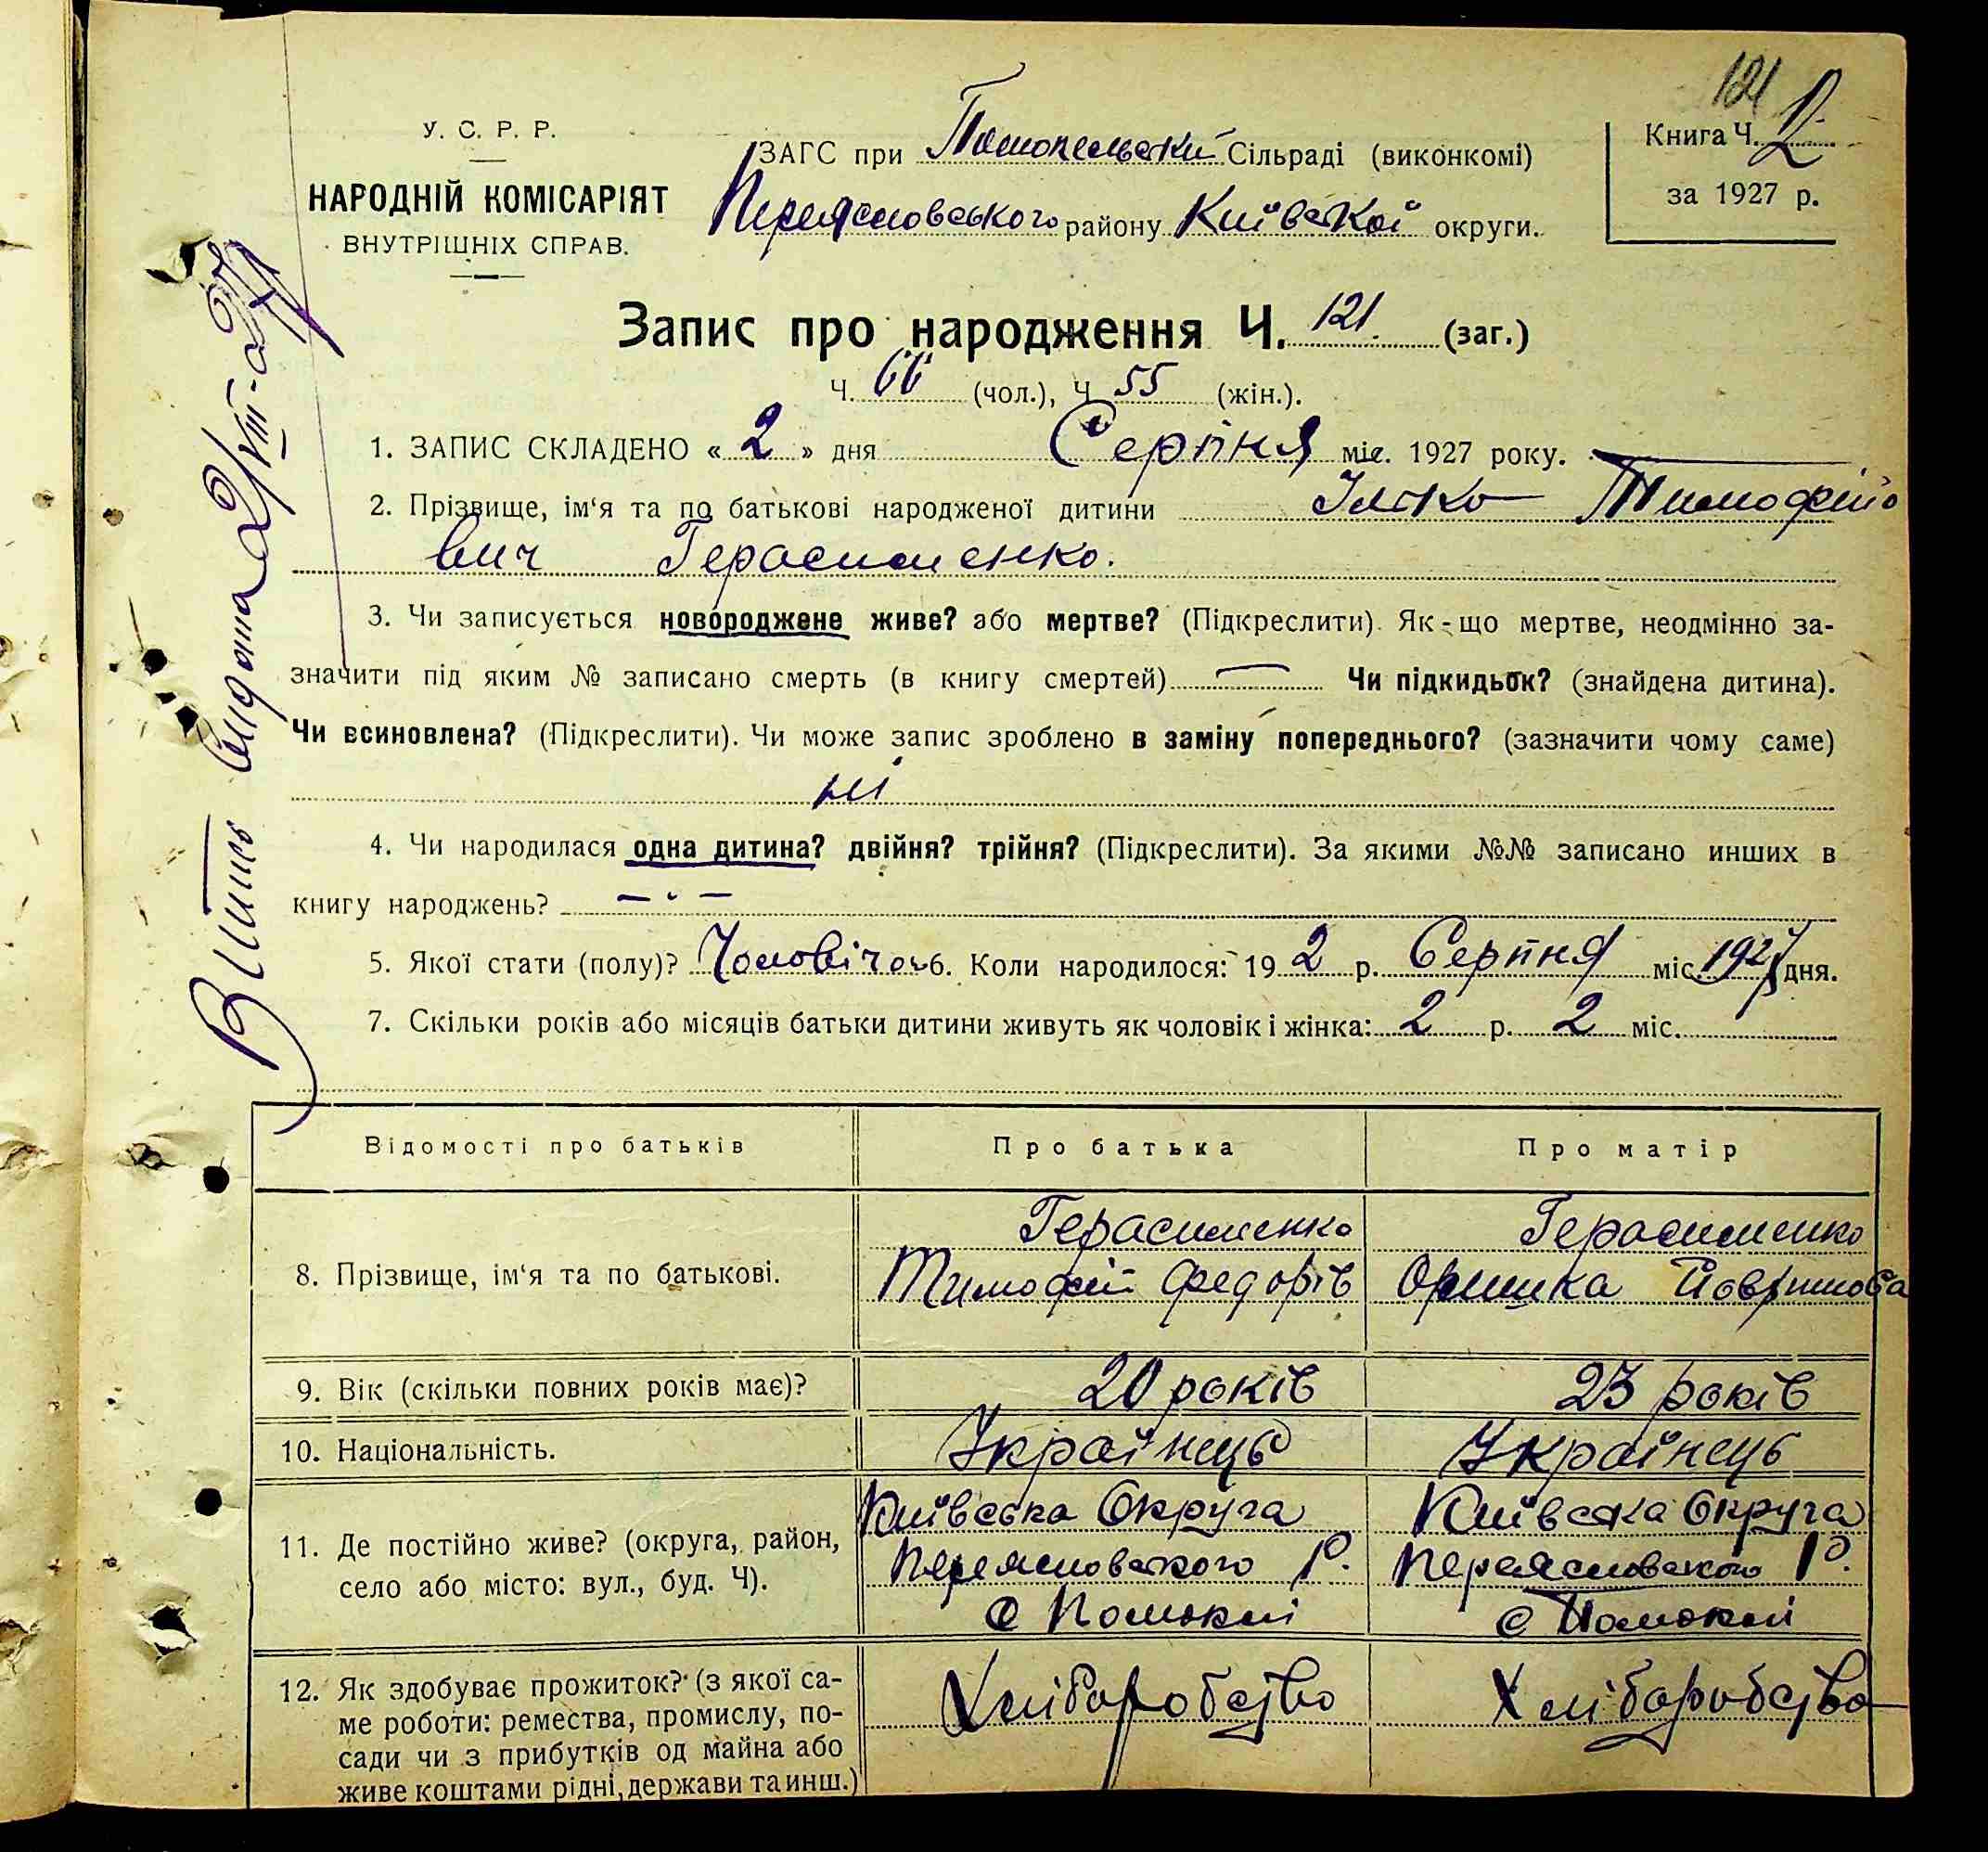 121
У. С. Р. Р.
НАРОДНІЙ КОМІСАРІЯТ
ВНУТРІШНІХ СПРАВ.
ЗАГС при Сільраді (виконкомі)
Переясловського району Київської округи.
Книга Ч. 2
за 1927 р.
Запис про народження Ч. 121. (заг.)
Ч. 66 (чол.), Ч 55 (жін.).
1. ЗАПИС СКЛАДЕНО « 2 » дня Серпня міс. 1927 року.
2. Прізвище, ім'я та по батькові народженої дитини Ілько Тимофійо
вич Герасименко.
3. Чи записується новороджене живе? або мертве? (Підкреслити). Як-що мертве, неодмінно за-
значити під яким № записано смерть (в книгу смертей) — Чи підкидьок? (знайдена дитина).
Чи всиновлена? (Підкреслити). Чи може запис зроблено в заміну попереднього? (зазначити чому саме)
ні
4. Чи народилася одна дитина? двійня? трійня? (Підкреслити). За якими №№ записано инших в
книгу народжень? — " —
5. Якої стати (полу)? Чоловічої 6. Коли народилося: 19 2 р. Серпня міс. 1927 дня.
7. Скільки років або місяців батьки дитини живуть як чоловік і жінка: 2 р. 2 міс.
Витяг видана 2/VIII-27
Відомості про батьків
Про батька
Про матір
8. Прізвище, ім'я та по батькові.
Герасименко
Тимофій Федорів
Герасименко
Оришка
9. Вік (скільки повних років має)?
20 років
23 років
10. Національність.
Українець
Українець
11. Де постійно живе? (округа, район,
село або місто: вул., буд. Ч).
Київська Округа
Переясловського Р.
с Помоклі
Київська Округа
Переясловського Р.
с Помоклі
12. Як здобуває прожиток? (з якої са-
ме роботи: ремества, промислу, по-
сади чи з прибутків од майна або
живе коштами рідні, держави та инш.)
Хліборобство
Хліборобство